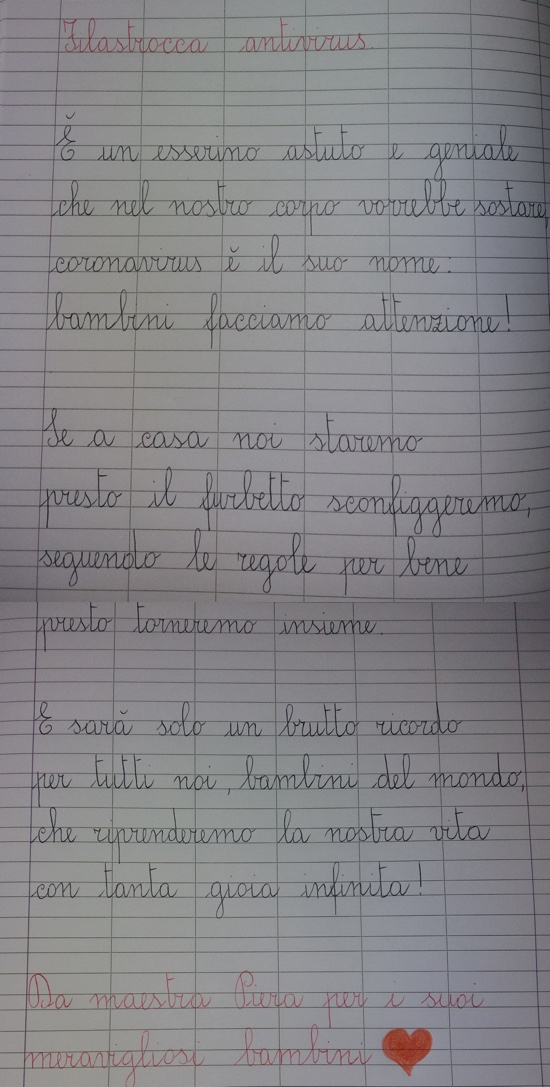 Filastrocca antivirus
È un esserino astuto e geniale
che nel nostro corpo vorrebbe sostare,
coronavirus è il suo nome:
bambini facciamo attenzione!
Se a casa noi staremo
presto il furbetto sconfiggeremo,
seguendo le regole per bene
presto torneremo insieme.
E sarà solo un brutto ricordo
per tutti noi, bambini del mondo,
che riprenderemo la nostra vita
con tanta gioia infinita!
Da maestra Piera per i suoi
meravigliosi bambini